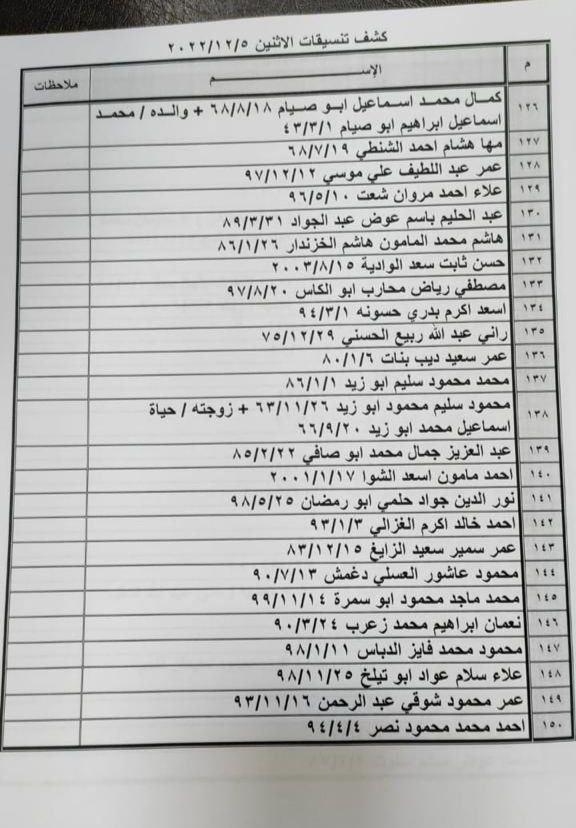 كشف تنسيقات الاثنين ٢٠٢٢/١٢/٥
م الإســـــــم ملاحظات
١٢٦ كمال محمد اسماعيل ابو صيام ٦٨/٨/١٨ + والده / محمد
اسماعيل ابراهيم ابو صيام ٤٣/٣/١
١٢٧ مها هشام احمد الشنطي ٦٨/٧/١٩
١٢٨ عمر عبد اللطيف علي موسي ٩٧/١٢/١٢
١٢٩ علاء احمد مروان شعت ٩٦/٥/١٠
١٣٠ عبد الحليم باسم عوض عبد الجواد ٨٩/٣/٣١
١٣١ هاشم محمد المامون هاشم الخزندار ٨٦/١/٢٦
١٣٢ حسن ثابت سعد الوادية ٢٠٠٣/٨/١٥
١٣٣ مصطفي رياض محارب ابو الكاس ٩٧/٨/٢٠
١٣٤ اسعد اكرم بدري حسونه ٩٤/٣/١
١٣٥ راني عبد الله ربيع الحسني ٧٥/١٢/٢٩
١٣٦ عمر سعيد ديب بنات ٨٠/١/٦
١٣٧ محمد محمود سليم ابو زيد ٨٦/١/١
١٣٨ محمود سليم محمود ابو زيد ٦٣/١١/٢٦ + زوجته / حياة
اسماعيل محمد ابو زيد ٦٦/٩/٢٠
١٣٩ عبد العزيز جمال محمد ابو صافي ٨٥/٢/٢٢
١٤٠ احمد مامون اسعد الشوا ٢٠٠١/١/١٧
١٤١ نور الدين جواد حلمي ابو رمضان ٩٨/٥/٢٥
١٤٢ احمد خالد اكرم الغزالي ٩٣/١/٣
١٤٣ عمر سمير سعيد الزايغ ٨٣/١٢/١٥
١٤٤ محمود عاشور العسلي دغمش ٩٠/٧/١٣
١٤٥ محمد ماجد محمود ابو سمرة ٩٩/١١/١٤
١٤٦ نعمان ابراهيم محمد زعرب ٩٠/٣/٢٤
١٤٧ محمود محمد فايز الدباس ٩٨/١/١١
١٤٨ علاء سلام عواد ابو تيلخ ٩٨/١١/٢٥
١٤٩ عمر محمود شوقي عبد الرحمن ٩٣/١١/١٦
١٥٠ احمد محمد محمود نصر ٩٤/٤/٤